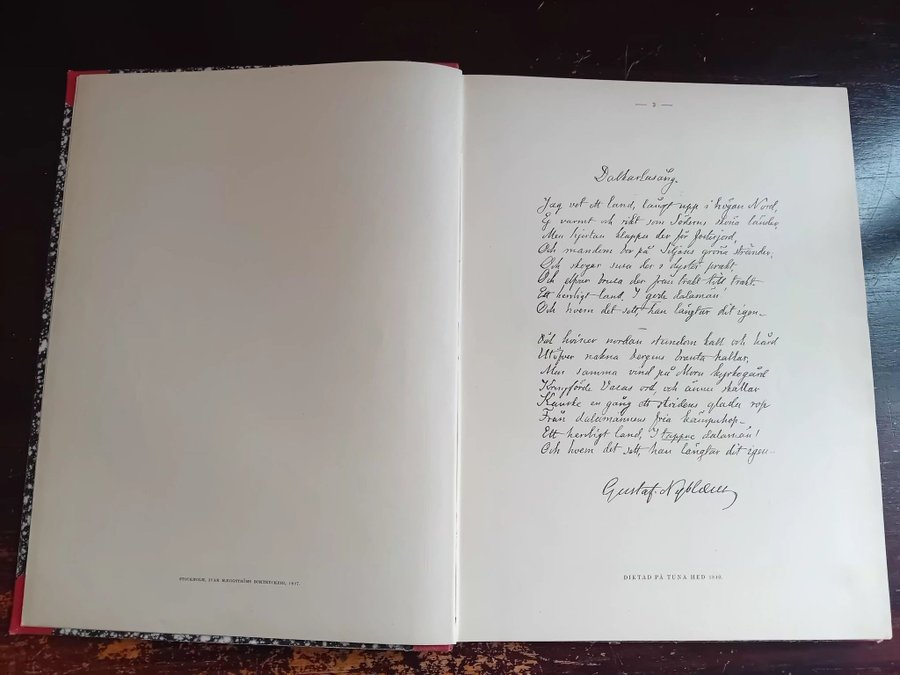 STOCKHOLM, IVAR HÆGGSTRÖMS BOKTRYCKERI, 1897.
— 3 —
Dalkarlasång.
Jag vet ett land, långt upp i högan Nord,
Ej varmt och rikt som Söderns sköna länder,
Men hjertan klappa der för fosterjord,
Och mandom bor på Siljans gröna stränder.
Och skogar susa der i dyster prakt,
Och elfvar brusa der från trakt till trakt.
Ett herrligt land, I gode dalamän!
Och hvem det sett, han längtar dit igen.
Väl hviner nordan stundom kall och hård
Utöfver nakna bergens branta hallar,
Men samma vind på Mora kyrkogård
Kringförde Vasas ord, och ännu skallar
Kanske en gång ett stridens glada rop
Från dalamännens fria kämpahop.
Ett herrligt land, I tappre dalamän!
Och hvem det sett, han längtar dit igen.
Gustaf Nyblæus
DIKTAD PÅ TUNA HED